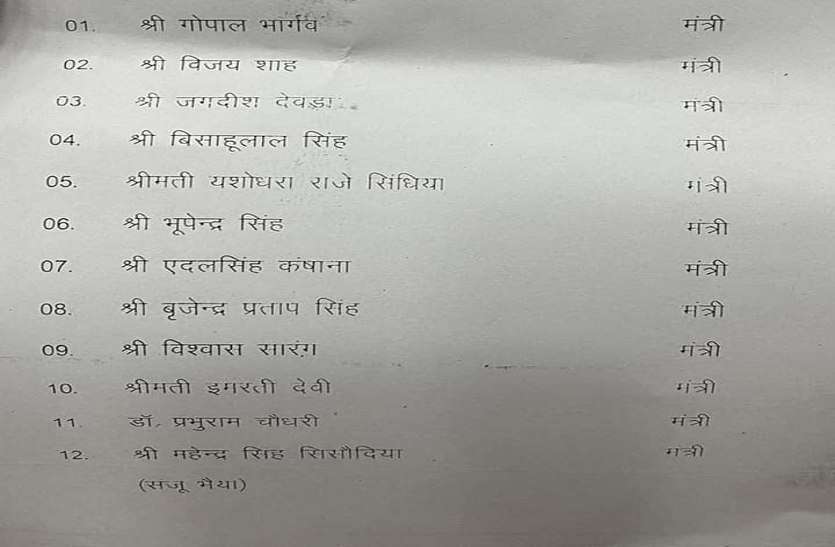 01. श्री गोपाल भार्गव मंत्री
02. श्री विजय शाह मंत्री
03. श्री जगदीश देवड़ा मंत्री
04. श्री बिसाहूलाल सिंह मंत्री
05. श्रीमती यशोधरा राजे सिंधिया मंत्री
06. श्री भूपेन्द्र सिंह मंत्री
07. श्री एदलसिंह कंषाना मंत्री
08. श्री बृजेन्द्र प्रताप सिंह मंत्री
09. श्री विश्वास सारंग मंत्री
10. श्रीमती इमरती देवी मंत्री
11. डॉ. प्रभुराम चौधरी मंत्री
12. श्री महेन्द्र सिंह सिसौदिया मंत्री
(संजू भैया)